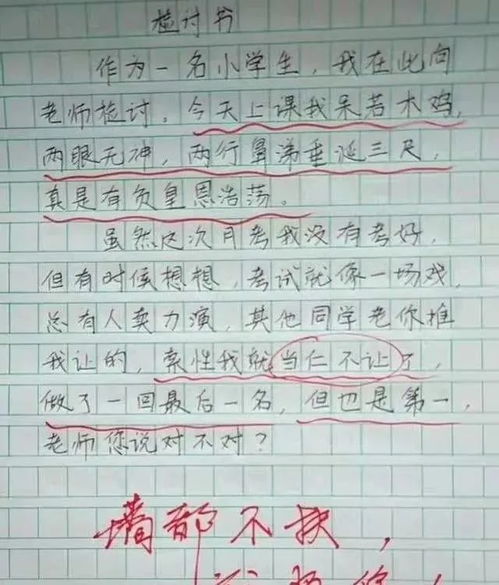 检讨书
作为一名小学生，我在此向
老师检讨，今天上课我呆若木鸡，
两眼无神，两行鼻涕垂涎三尺，
真是有负皇恩浩荡。
虽然这次月考我没有考好，
但有时候想想，考试就像一场戏，
总有人卖力演，其他同学老你推
我让的，索性我就当仁不让了，
做了一回最后一名，但也是第一，
老师您说对不对？
墙都不扶，